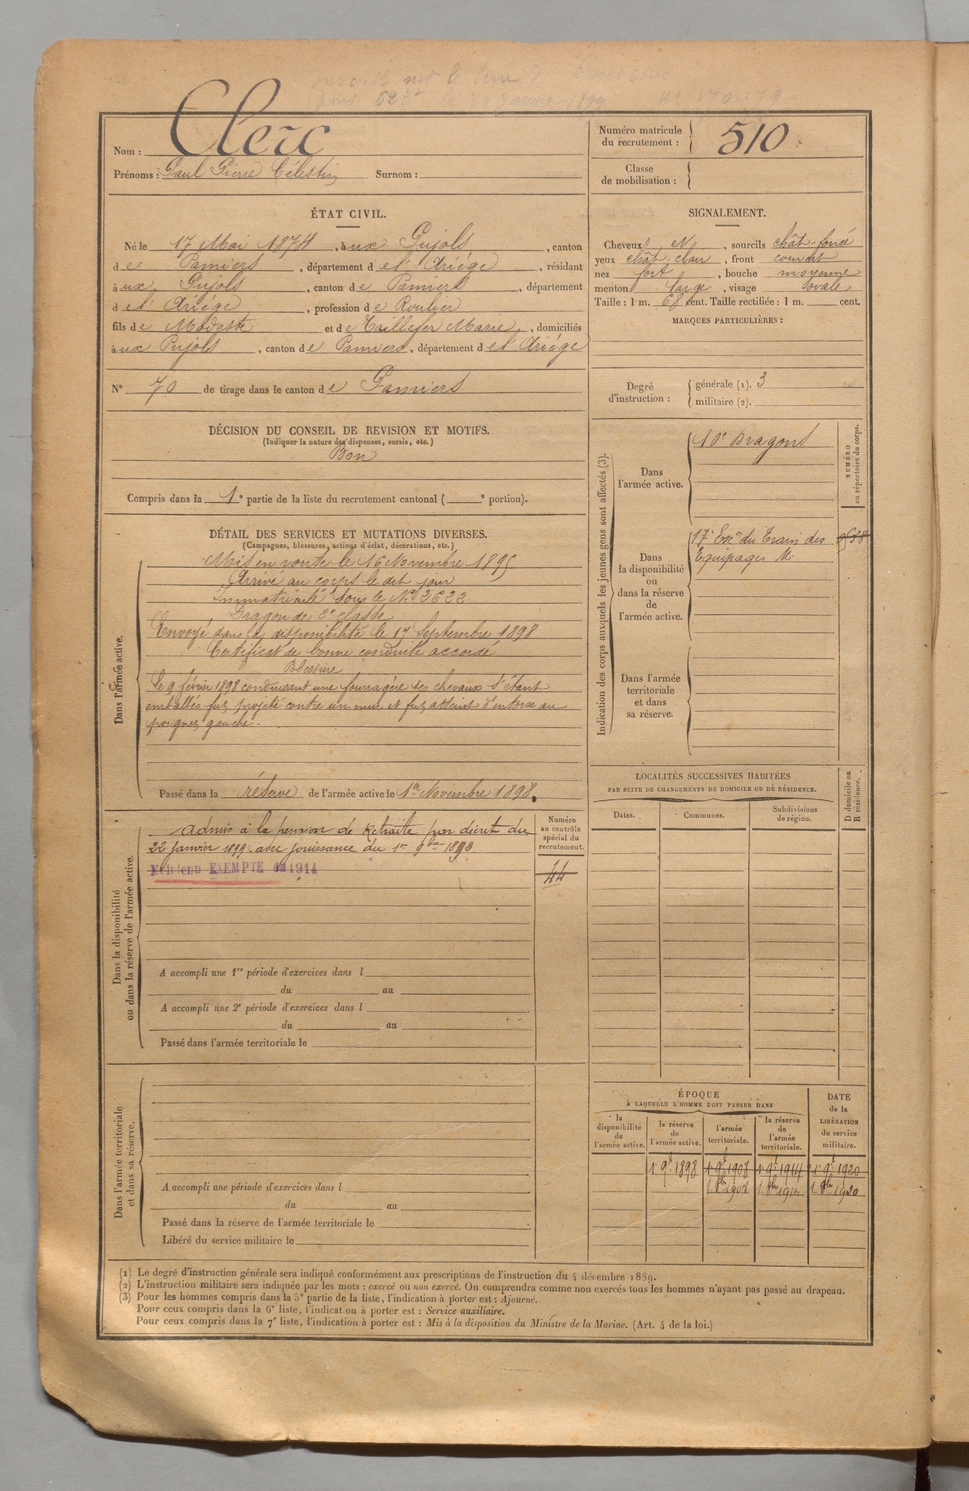 Nom : Clerc
Prénoms : Paul Pierre Célestin Surnom :
Numéro matricule
du recrutement : 510
Classe
de mobilisation :
ÉTAT CIVIL.
Né le 17 Mai 1874, à ux Pujols, canton
de Pamiers, département de l'Ariège, résidant
à ux Pujols, canton de Pamiers, département
de l'Ariège, profession de Roulier
fils de Modeste et de Taillefer Marie, domiciliés
à ux Pujols, canton de Pamiers, département de l'Ariège
N° 70 de tirage dans le canton de Pamiers
SIGNALEMENT.
Cheveux N, sourcils chât. foncé
yeux chât. clair, front couvert
nez fort, bouche moyenne
menton large, visage ovale
Taille : 1 m. 68 cent. Taille rectifiée : 1 m. cent.
MARQUES PARTICULIÈRES :
Degré
d'instruction :
générale (1). 3
militaire (2).
DÉCISION DU CONSEIL DE REVISION ET MOTIFS.
(Indiquer la nature des dispenses, sursis, etc.)
Bon
Compris dans la 1e partie de la liste du recrutement cantonal ( e portion).
DÉTAIL DES SERVICES ET MUTATIONS DIVERSES.
(Campagnes, blessures, actions d'éclat, décorations, etc.)
Dans l'armée active.
Mis en route le 16 Novembre 1895
Arrivé au corps le dit jour
Immatriculé sous le N° 2622
Dragon de 2e classe
Envoyé dans la disponibilité le 17 Septembre 1898
Certificat de bonne conduite accordé
Blessure
Le 9 février 1898 conduisant une fouragère ses chevaux s'étant
emballés fut projeté contre un mur et fut atteint d'entorse au
poignet gauche.
Passé dans la réserve de l'armée active le 1er Novembre 1898.
Indication des corps auxquels les jeunes gens sont affectés (3).
Dans
l'armée active.
10e Dragons
NUMÉRO
au répertoire du corps.
Dans
la disponibilité
ou
dans la réserve
de
l'armée active.
17e Eon du Train des
Equipages M.
Dans l'armée
territoriale
et dans
sa réserve.
Dans la disponibilité
ou dans la réserve de l'armée active.
Admis à la pension de Retraite par décret du
22 janvier 1899 avec jouissance du 1er 9bre 1898.
Maintenu EXEMPTE en 1914
Numéro
au contrôle
spécial du
recrutement.
44
A accompli une 1re période d'exercices dans l
du au
A accompli une 2e période d'exercices dans l
du au
Passé dans l'armée territoriale le
LOCALITÉS SUCCESSIVES HABITÉES
PAR SUITE DE CHANGEMENTS DE DOMICILE OU DE RÉSIDENCE.
Dates.
Communes.
Subdivisions
de région.
D domicile ou
R résidence.
Dans l'armée territoriale
et dans sa réserve.
A accompli une période d'exercices dans l
du au
Passé dans la réserve de l'armée territoriale le
Libéré du service militaire le
ÉPOQUE
À LAQUELLE L'HOMME DOIT PASSER DANS
la
disponibilité
de
l'armée active.
la réserve
de
l'armée active.
l'armée
territoriale.
la réserve
de
l'armée
territoriale.
DATE
de la
LIBÉRATION
du service
militaire.
1 9bre 1898 1 9bre 1908 1 9bre 1914 1 9bre 1920
(1) Le degré d'instruction générale sera indiqué conformément aux prescriptions de l'instruction du 4 décembre 1889.
(2) L'instruction militaire sera indiquée par les mots : exercé ou non exercé. On comprendra comme non exercés tous les hommes n'ayant pas passé au drapeau.
(3) Pour les hommes compris dans la 5e partie de la liste, l'indication à porter est : Ajourné.
Pour ceux compris dans la 6e liste, l'indication à porter est : Service auxiliaire.
Pour ceux compris dans la 7e liste, l'indication à porter est : Mis à la disposition du Ministre de la Marine. (Art. 4 de la loi.)